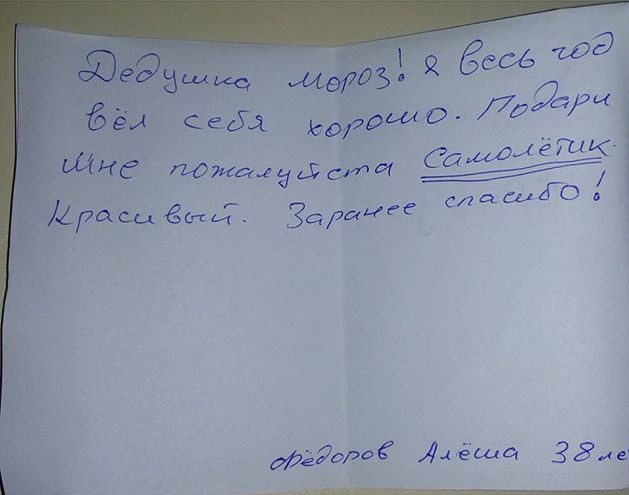 Дедушка мороз! Я весь год
вёл себя хорошо. Подари
мне пожалуйста самолётик.
Красивый. Заранее спасибо!
Фёдоров Алёша 38 ле